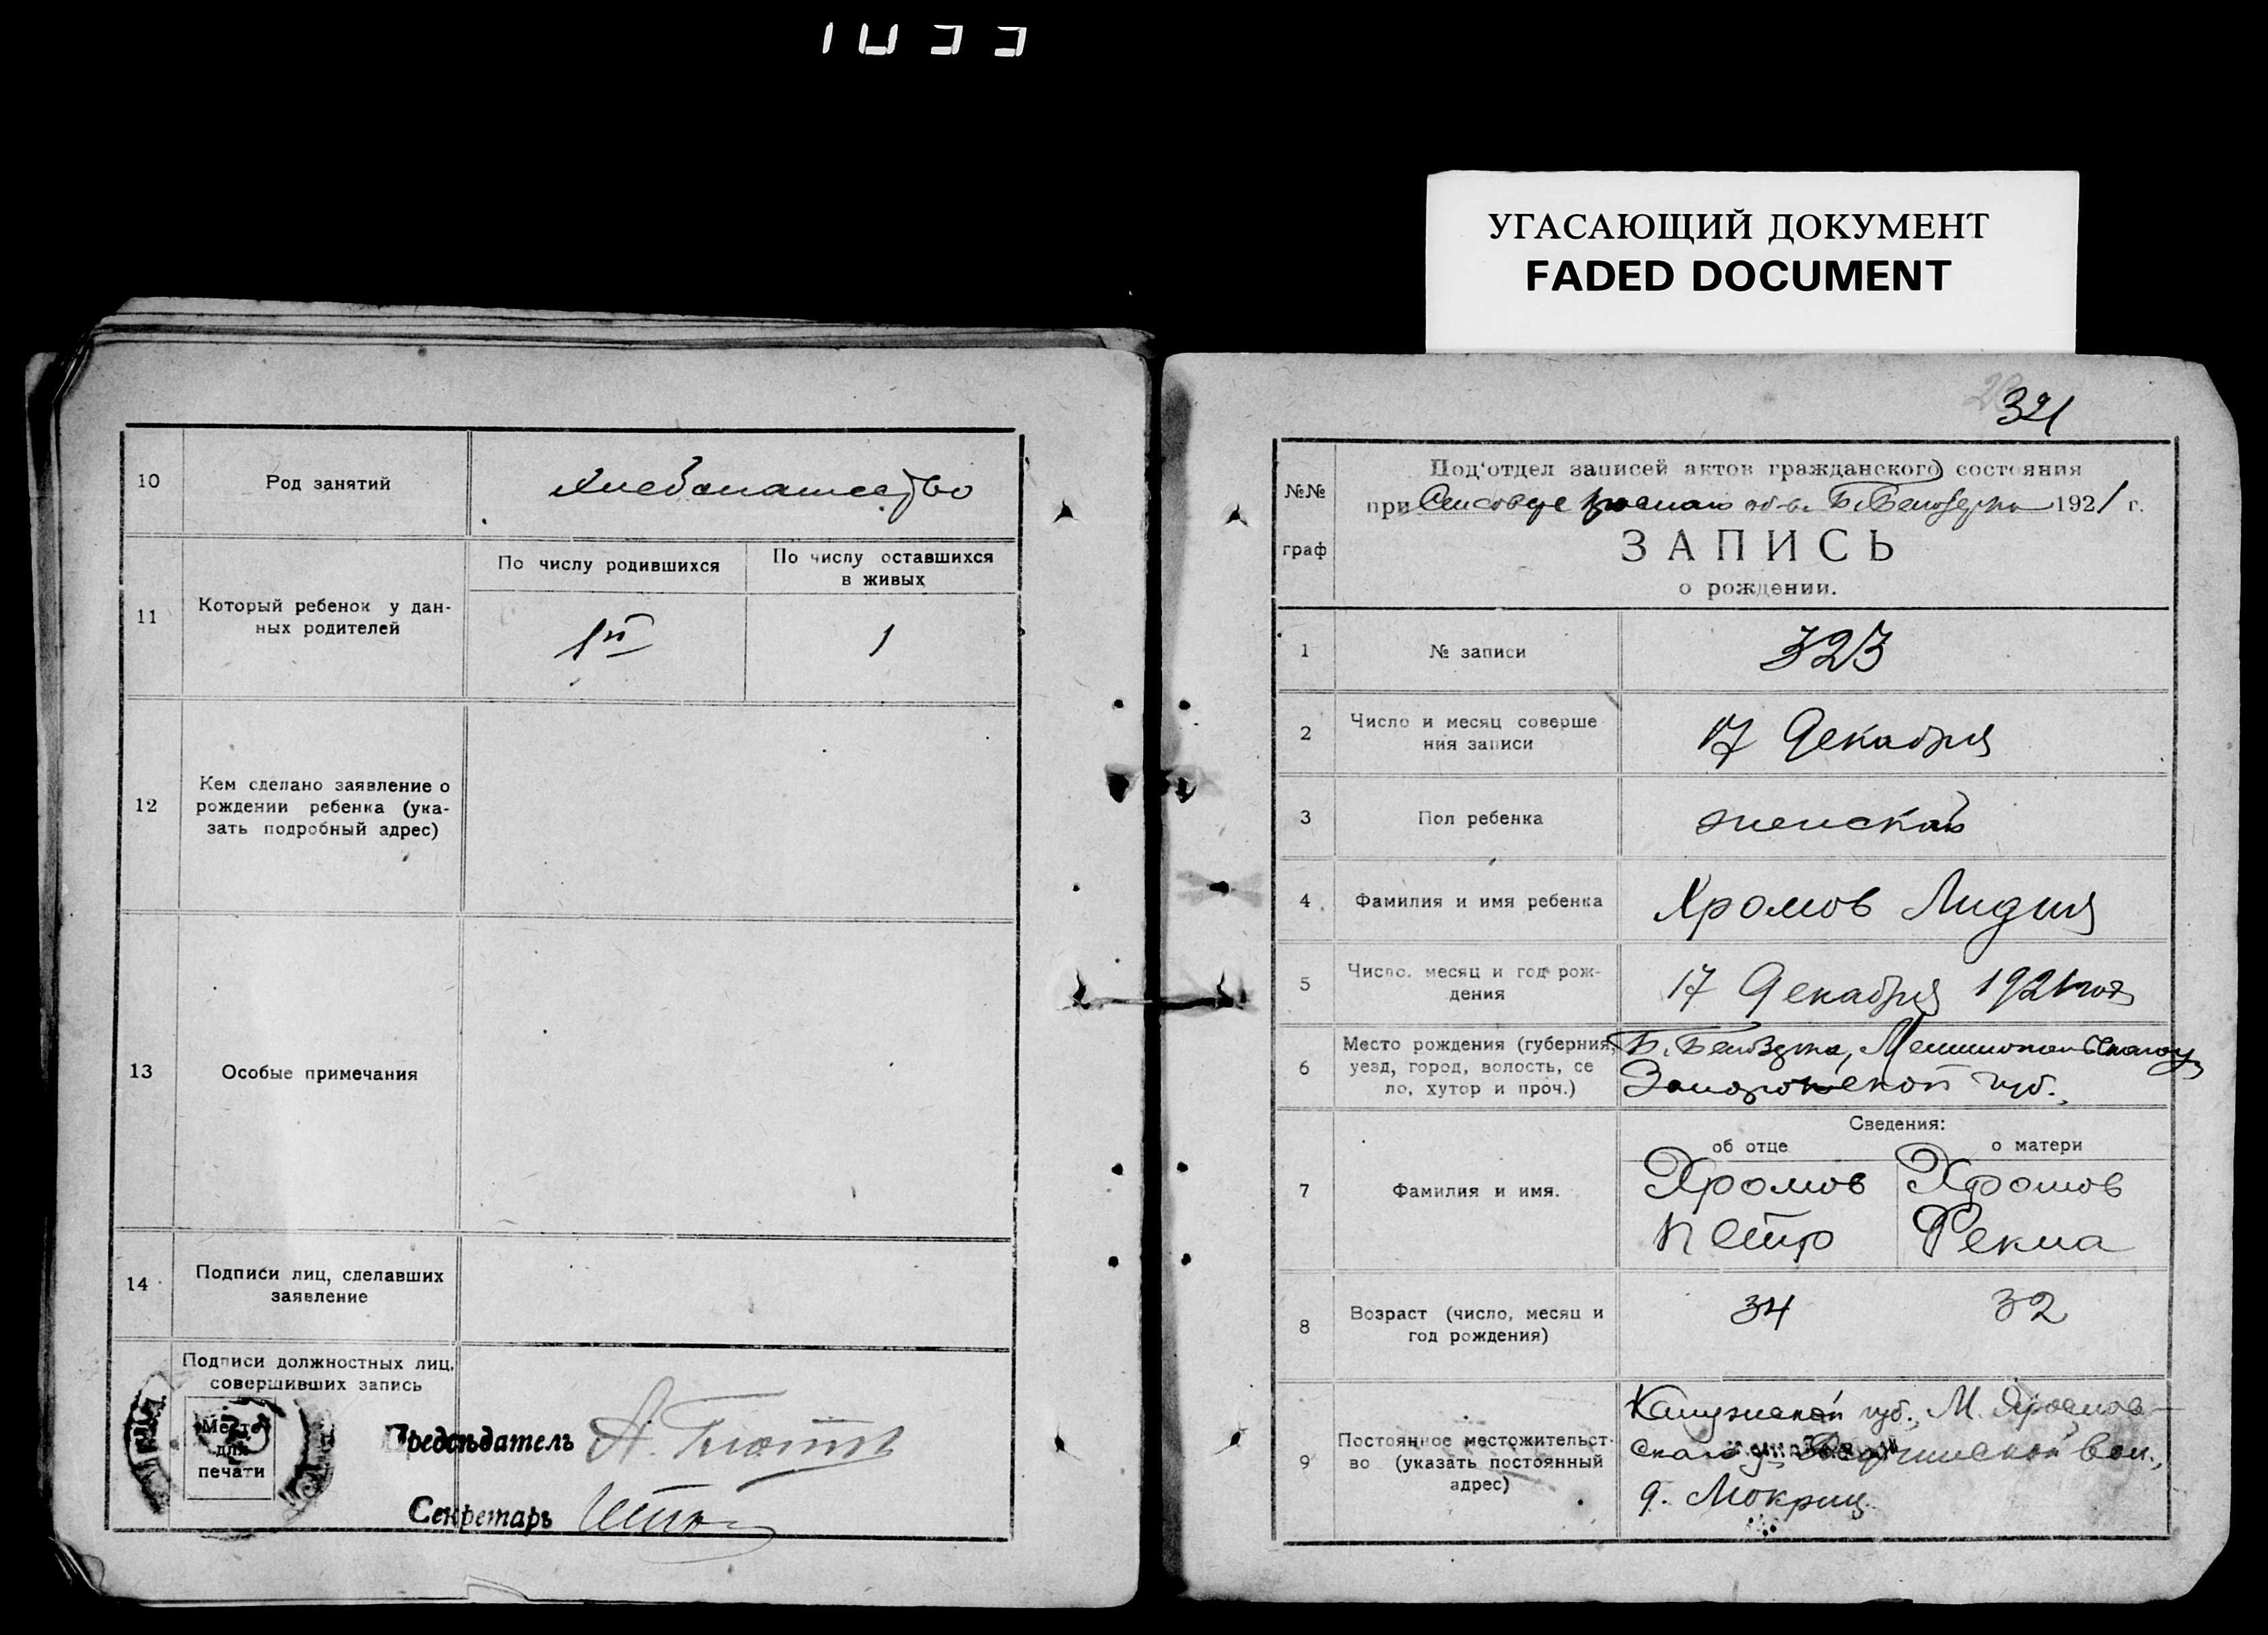 УГАСАЮЩИЙ ДОКУМЕНТ
FADED DOCUMENT
10
Род занятий
Хлебопашество
11
Который ребенок у дан-
ных родителей
По числу родившихся
По числу оставшихся
в живых
1й
1
12
Кем сделано заявление о
рождении ребенка (ука-
зать подробный адрес)
13
Особые примечания
14
Подписи лиц, сделавших
заявление
Подписи должностных лиц,
совершивших запись
Место
для
печати
Председатель
Секретарь
321
№№
граф
Под'отдел записей актов гражданского состояния
при Б. Белозерка 1921 г.
ЗАПИСЬ
о рождении.
1
№ записи
323
2
Число и месяц соверше
ния записи
17 Декабря
3
Пол ребенка
женский
4
Фамилия и имя ребенка
Хромов Лидия
5
Число, месяц и год рож-
дения
17 Декабря 1921 год
6
Место рождения (губерния,
уезд, город, волость, се
ло, хутор и проч.)
Б. Белозерка, Мелитопольского у
Запорожской губ.
Сведения:
об отце
о матери
7
Фамилия и имя.
Хромов
Петр
Хромов
Фекла
8
Возраст (число, месяц и
год рождения)
34
32
9
Постоянное местожительст-
во (указать постоянный
адрес)
Калужской губ., М. Ярослав-
ского у. вол.,
д. Мокрищ